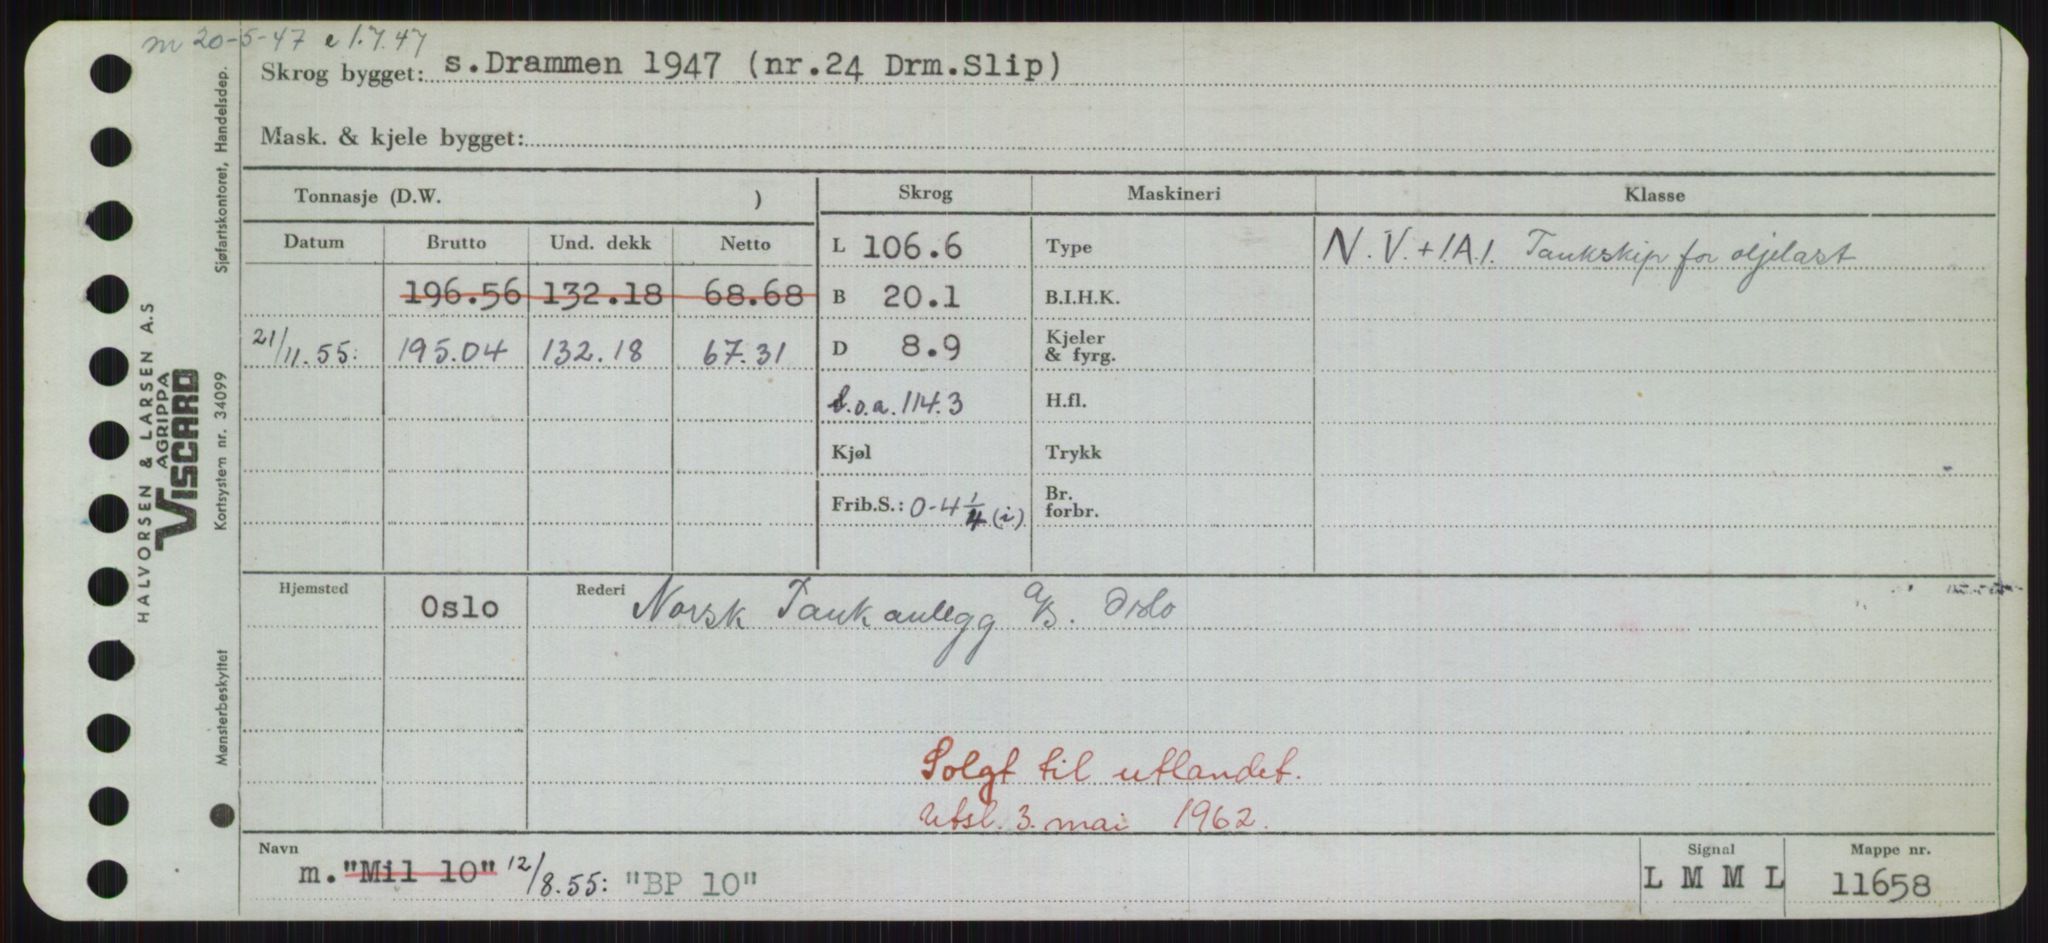 m 20-5-47 e 1.7.47
Skrog bygget: s.Drammen 1947 (nr.24 Drm.Slip)
Mask. & kjele bygget:
Tonnasje (D.W. )
Skrog
Maskineri
Klasse
Datum Brutto Und. dekk Netto
L 106.6
Type
N.V.+1.A.1. Tankskip for oljelast
196.56 132.18 68.68
B 20.1
B.I.H.K.
21/11.55: 195.04 132.18 67.31
D 8.9
Kjeler
& fyrg.
l.o.a. 114.3
H.fl.
Kjøl
Trykk
Frib.S.: 0-4 1/4 (i)
Br.
forbr.
Hjemsted Oslo
Rederi Norsk Tankanlegg a/s. Oslo
Solgt til utlandet.
Utsl. 3. mai 1962.
Navn
m. "Mil 10" 12/8.55: "BP 10"
Signal
L M M L
Mappe nr.
11658
HALVORSEN & LARSEN A.S
AGRIPPA
VISCARD
Mønsterbeskyttet Kortsystem nr. 34099 Sjøfartskontoret, Handelsdep.